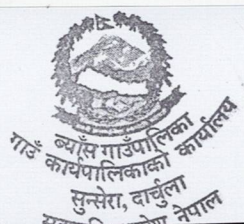 ब्याँस गाउँपालिका
गाउँ कार्यपालिकाको कार्यालय
सुन्सेरा, दार्चुला
नेपाल